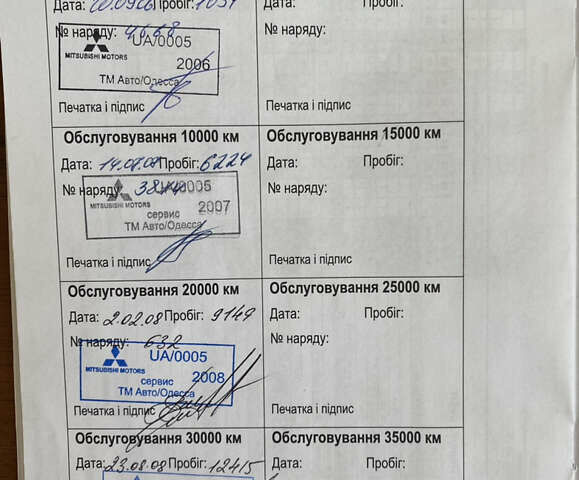 Дата: Пробіг: Пробіг:
№ наряду: 4668 № наряду:
UA/0005
MITSUBISHI MOTORS 2006
ТМ Авто/Одесса
Печатка і підпис Печатка і підпис
Обслуговування 10000 км Обслуговування 15000 км
Дата: Пробіг: 6224 Дата: Пробіг:
№ наряду: № наряду:
UA/0005
MITSUBISHI MOTORS 2007
сервис
ТМ Авто/Одесса
Печатка і підпис Печатка і підпис
Обслуговування 20000 км Обслуговування 25000 км
Дата: 2.02.08 Пробіг: 9149 Дата: Пробіг:
№ наряду: 632 № наряду:
UA/0005
MITSUBISHI MOTORS
сервис 2008
ТМ Авто/Одесса
Печатка і підпис Печатка і підпис
Обслуговування 30000 км Обслуговування 35000 км
Дата: 23.08.08 Пробіг: 12415 Дата: Пробіг: